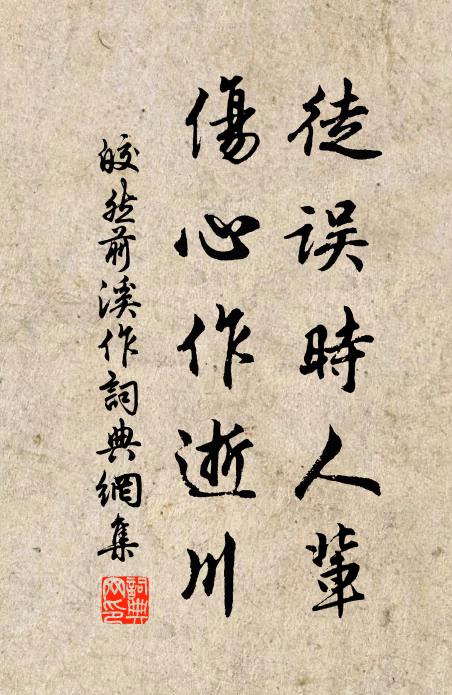 徒误時人輩
傷心作逝川
皎然前溪作詞典網集
詞典网印